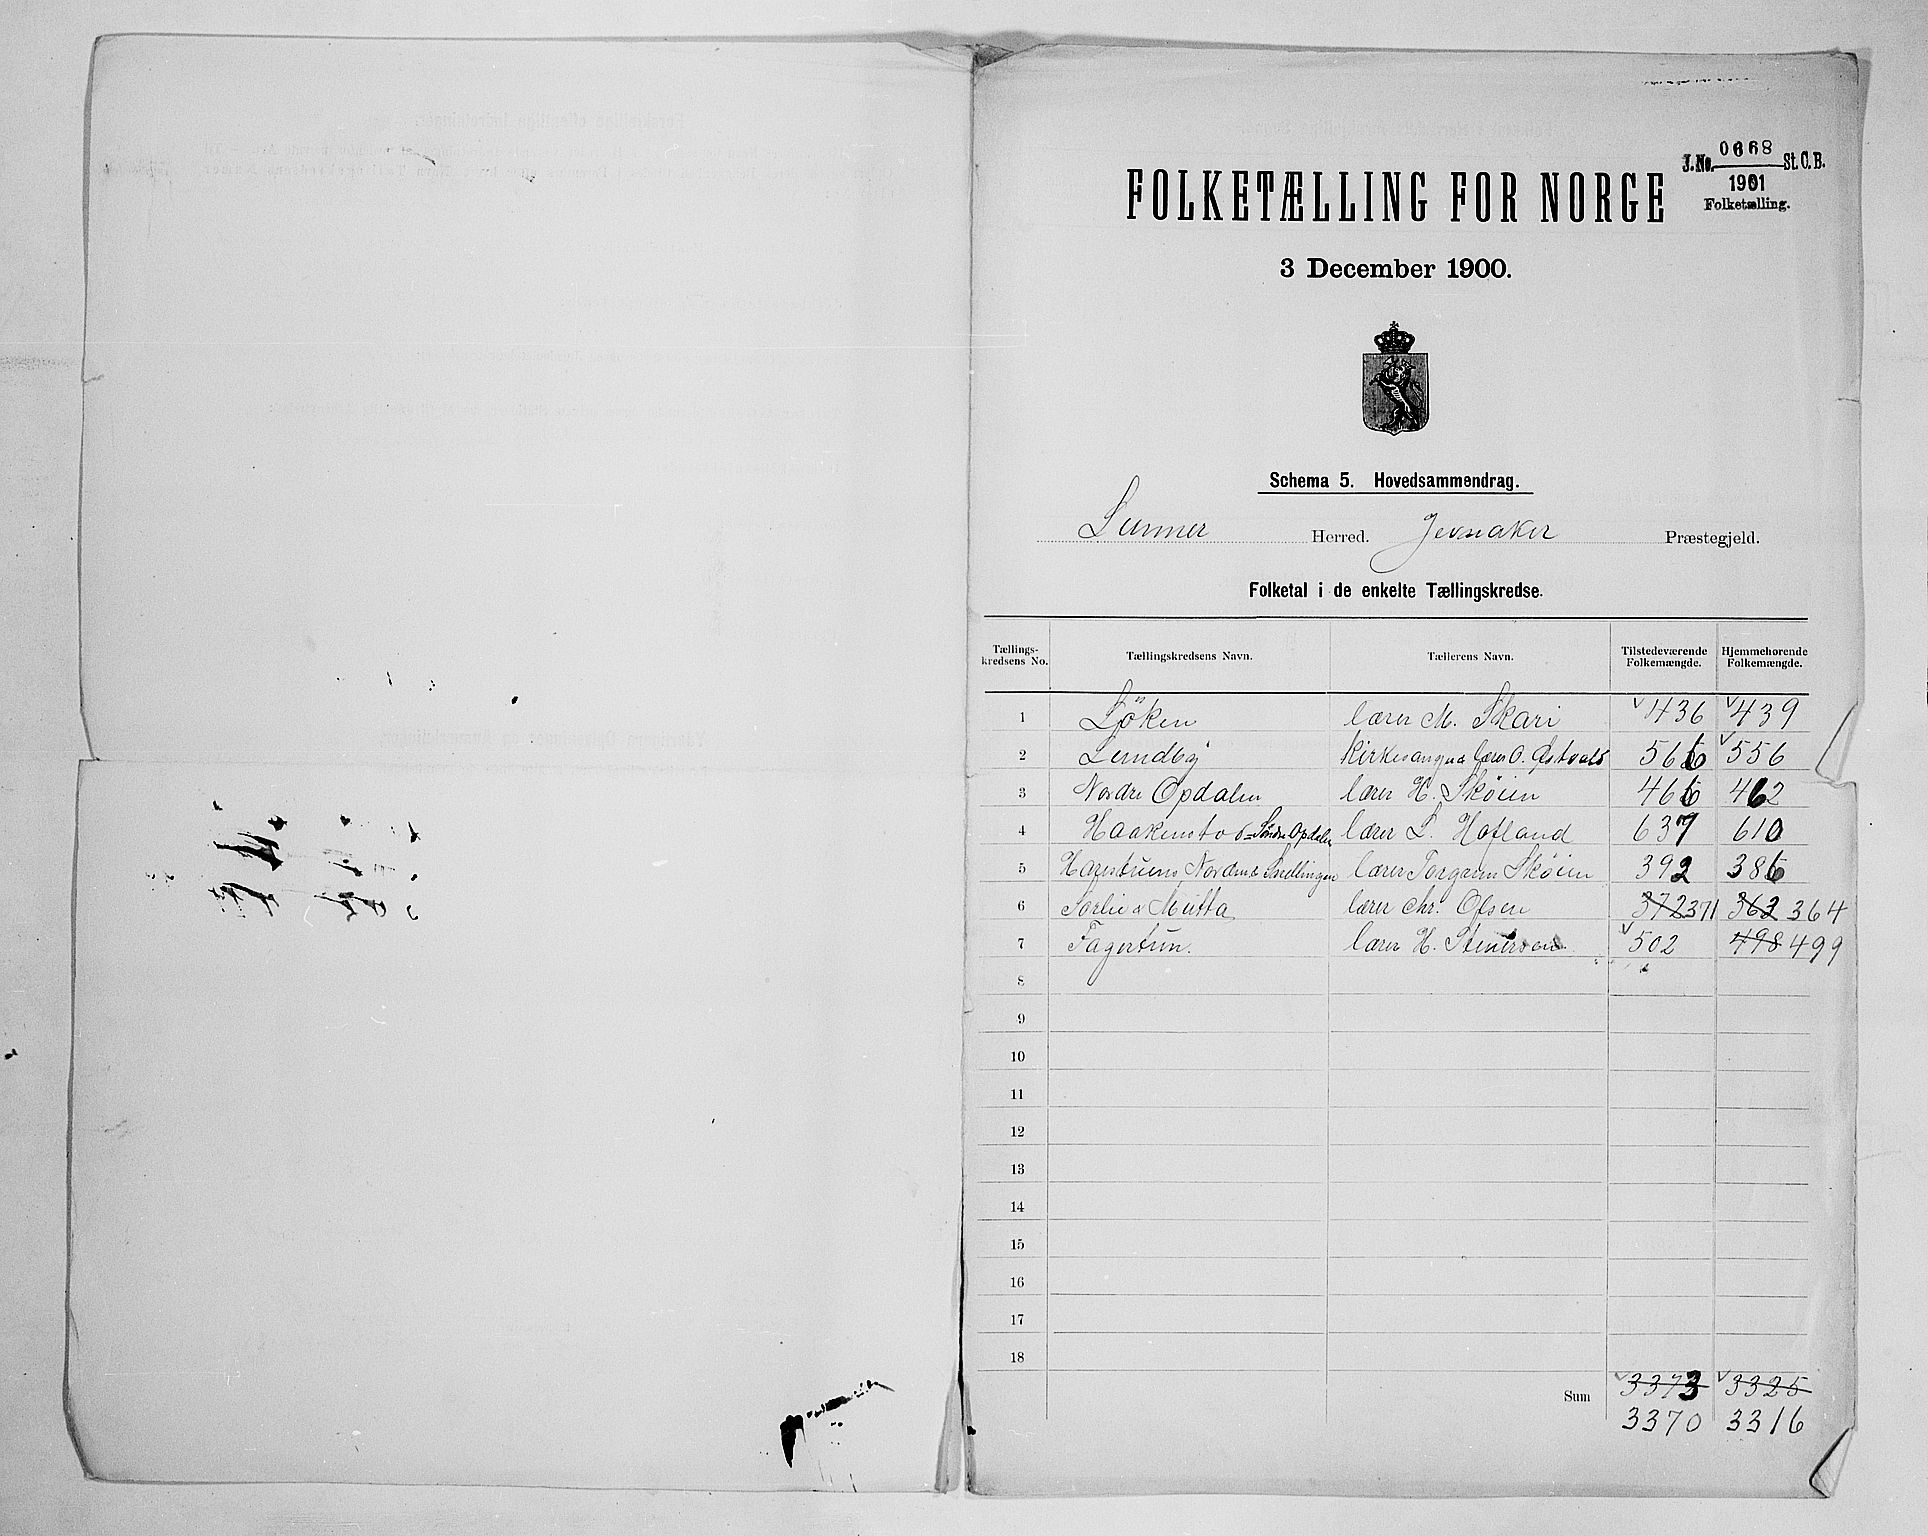 J.No. 0668 St.C.B.
1901
Folketælling.
FOLKETÆLLING FOR NORGE
3 December 1900.
Schema 5. Hovedsammendrag.
Lunner Herred. Jevnaker Præstegjeld.
Folketal i de enkelte Tællingskredse.
Tællings-kredsens No. Tællingskredsens Navn. Tællerens Navn. Tilstedeværende Folkemængde. Hjemmehørende Folkemængde.
1 Löken lærer M. Skari 436 439
2 Lundby Kirkesanger & lærer O. Østvold 566 556
3 Nordre Opdalen lærer H. Skøien 466 462
4 Haakensto & Søndre Opdalen lærer L. Hofland 637 610
5 Harestuens, Nordens Snellingen lærer Torgrim Skøien 392 386
6 Sørlie & Mutta lærer Chr. Olsen 372 371 363 364
7 Fagertun. lærer H. Stenersen 502 498 499
8
9
10
11
12
13
14
15
16
17
18
Sum 3373 3325
3370 3316